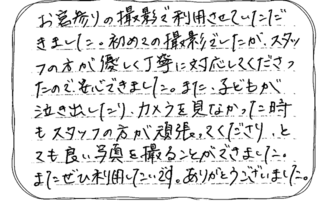 お宮参りの撮影で利用させていただ
きました。初めての撮影でしたが、スタッ
フの方が優しく丁寧に対応してくださっ
たので安心できました。また、子どもが
泣き出したり、カメラを見なかった時
もスタッフの方が頑張ってくださり、と
ても良い写真を撮ることができました。
またぜひ利用したいです。ありがとうございました。